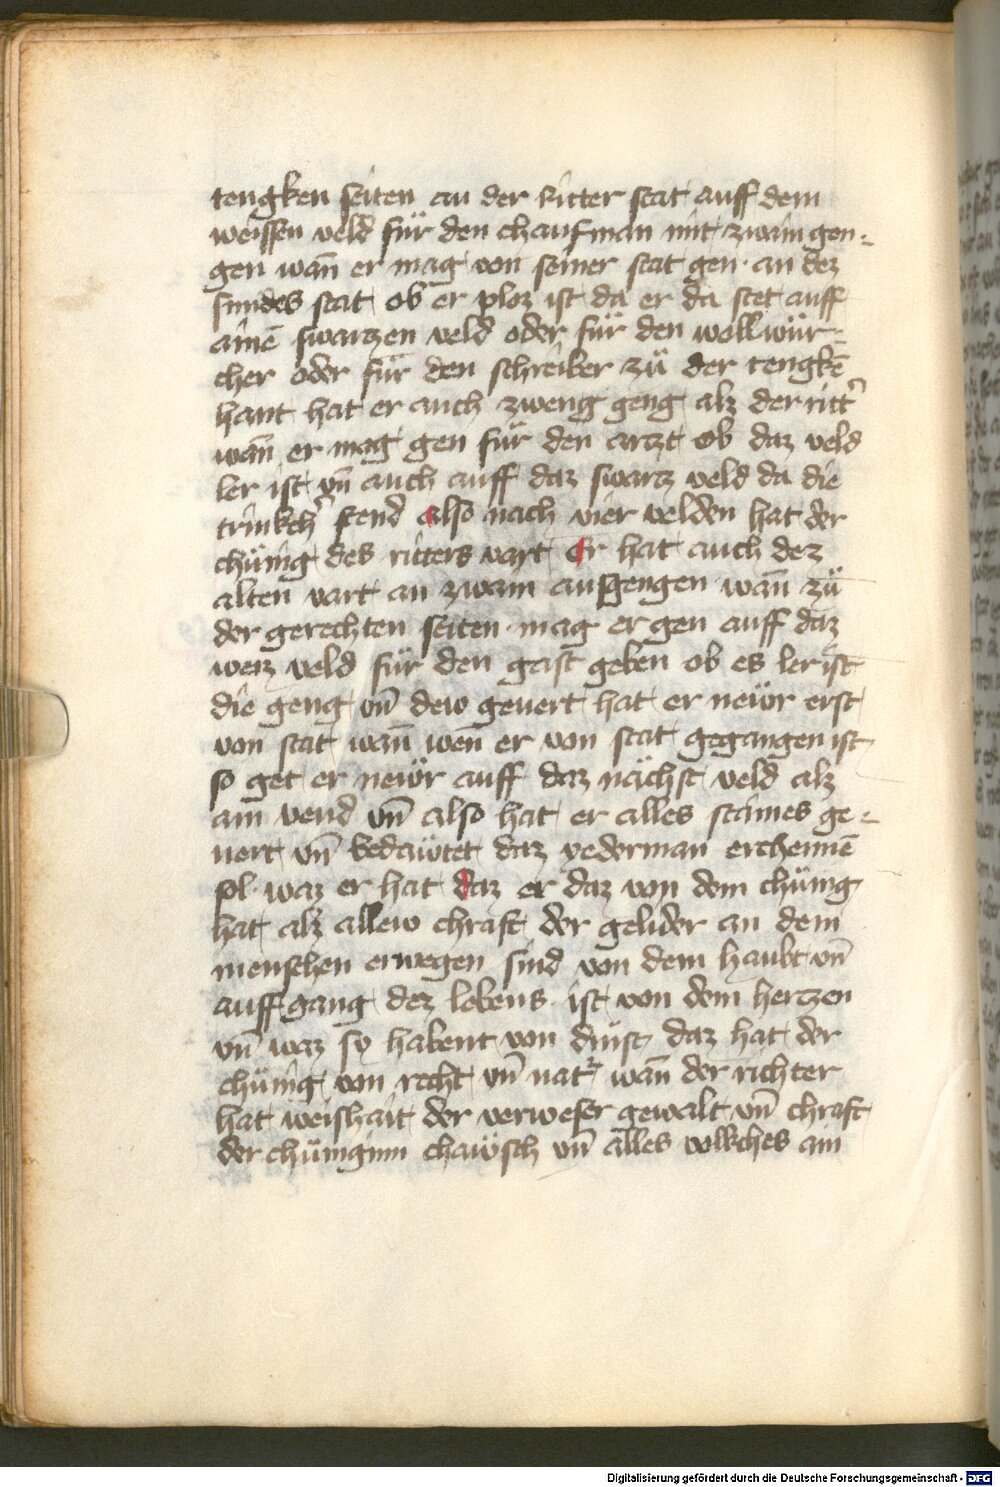 tengken seiten an der ritter stat auff dem
weissen veld für den chaufman mit zwain gen-
gen wan̄ er mag von seiner stat gen an dez
sundes stat ob er ploz ist da er da stet auff
aine͂ swarzen veld oder für den wollwür-
cher oder für den schreiber zü der tengke͂
hant hat er auch zweng geng alz der ritt'
wan̄ er mag gen für den arzt ob daz veld
ler ist vn̄ auch auff daz swarz veld da die
trinkch' stend also nach vier velden hat der
chünig des ritters vart er hat auch dez
alten vart an zwain ausgengen wan̄ zü
der gerechten seiten mag er gen auff daz
weiz veld für den gast geben ob es ler ist
die geng vn̄ dew geuert hat er newr erst
von stat wan̄ wen̄ er von stat gegangen ist
so get er newr auff daz nächst veld alz
ain vend vn̄ also hat er alles staines ge-
uert vn̄ bedäwtet daz yederman erchenne͂
sol waz er hat daz er daz von dem chünig
hat alz allew chraft der gelider an dem
menschen erwegen sind von dem haubt vn̄
auff gang dez lebens ist von dem hertzen
vn̄ waz so habent von dinst daz hat der
chünig von recht vn̄ nat'r wan̄ der richter
hat weishait der verweser gewalt vn̄ chraft
der chüniginn chäwsch vn̄ alles volkches ain
Digitalisierung gefördert durch die Deutsche Forschungsgemeinschaft - DFG